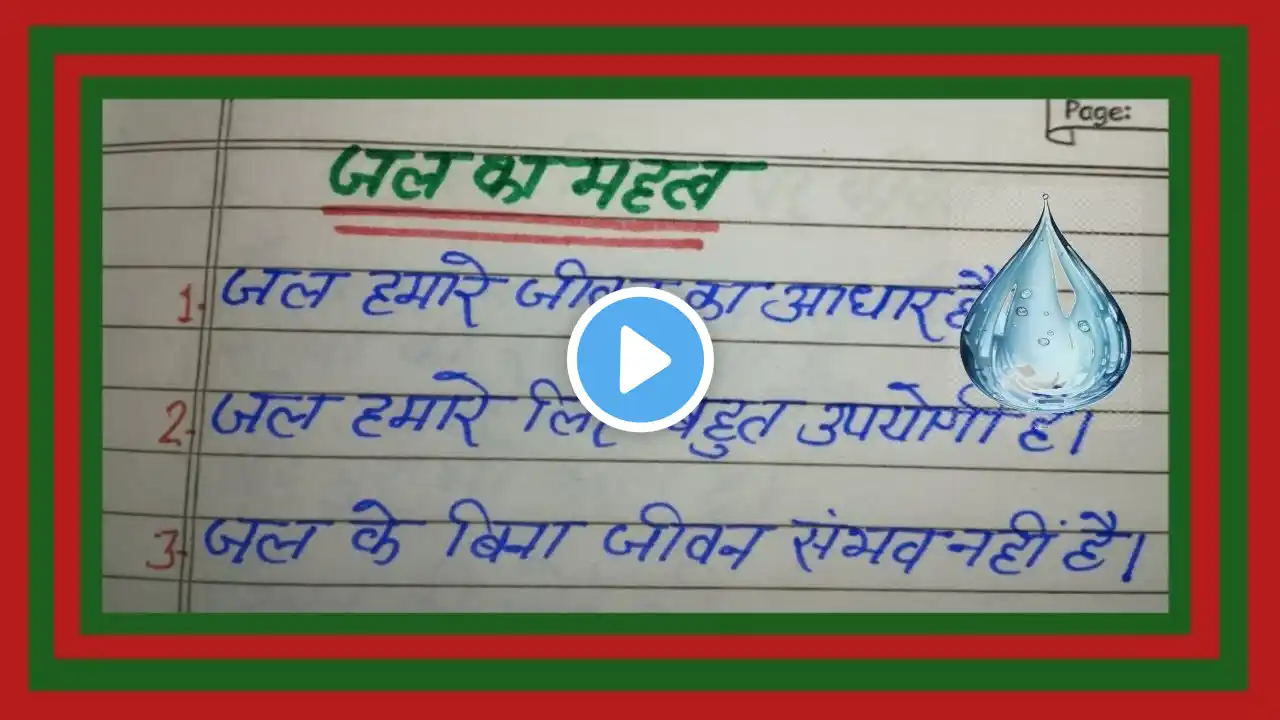 Page:
जल का महत्व
1. जल हमारे जीवन का आधार है
2. जल हमारे लिए बहुत उपयोगी है।
3. जल के बिना जीवन संभव नहीं है।